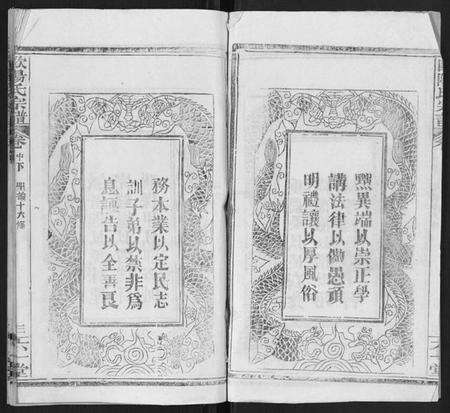 黜異端以崇正學
講法律以儆愚頑
明禮讓以厚風俗
務本業以定民志
訓子弟以禁非為
息誣告以全善良
歐陽氏宗譜
卷中下
聖諭十六條
六一堂